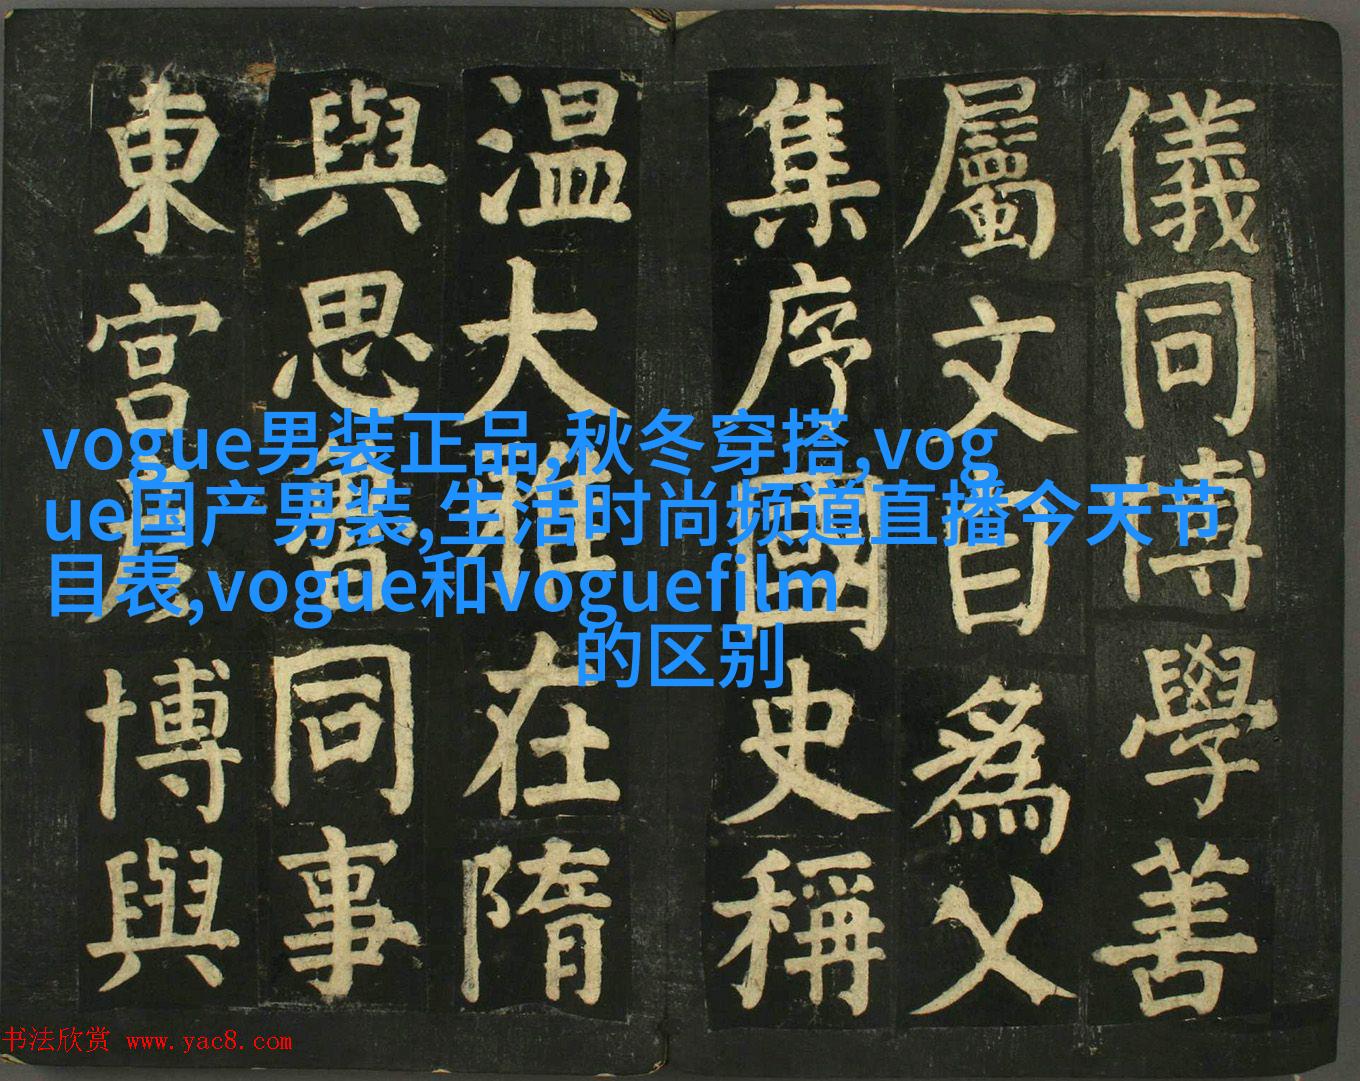 儀同博學善
屬文自為父
集序國史稱
温大雅在隋
與思魯同事
東宫彦博與
vogue男装正品,秋冬穿搭,vog
ue国产男装,生活时尚频道直播今天节
目表,vogue和voguefilm
的区别
书法欣赏 www.yac8.com